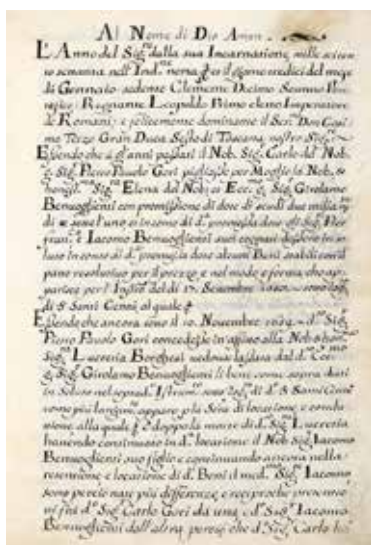 Al Nome di Dio Amen
L'Anno del Sig.re dalla sua Incarnazione mille seicen
to settanta nell'Ind.ne nona, e il giorno tredici del mese
di Gennaio sedente Clemente Decimo Sommo Pon
tefice; Regnante Leopoldo Primo eletto Imperatore
de Romani; e felicemente dominante il Ser. Don Cosi
mo Terzo Gran Duca Sesto di Toscana nostro Sig.re
Essendo che a gl'anni passati il Nob. Sig. Carlo del Nob.
Sig. Piero Pauolo Gori pigliasse per Moglie la Nob. &
Sig. Elena del Nob. et Ecc. Sig. Girolamo
Benuoglienti con promissione di dote di scudi due mila
di sessel'uno et in conto di d. promessa dote gli Sig. Pier
e Iacomo Benuoglienti suoi cognati
luto in conto di d. promessa dote alcuni Beni stabili
pano resoluto per il prezzo e nel modo e forma, che ap
parisce per l'Instr. del di 17. Settembre
di S Santi Cenni al quale
Essendo che ancora sotto il 10. Novembre d. Sig.
Piero Pauolo Gori concedesse in affitto alla Nob. &
Sig. Lucretia Borghesi vedoua lassata dal d. Ecc.
Sig. Girolamo Benuoglienti li beni come sopra dati
in soluto nel soprad. Istrum. sotto di d. S Santi Cenni
come più largam. appare p la Scritta di locatione, e condu
tione alla quale e doppo la morte di d. Sig. Lucretia
hauendo continuato in d. locatione il Nob. Sig. Iacomo
Benuoglienti suo figlio e continuando ancora nella
retentione e locatione di d. Beni il med. Sig. Iacomo
sono percio nate più differenze, e reciproche pretensio
ni fra d. Sig. Carlo Gori da una, e d. Sig. Iacomo
Benuoglienti dall'altra, percio che d. Sig. Carlo